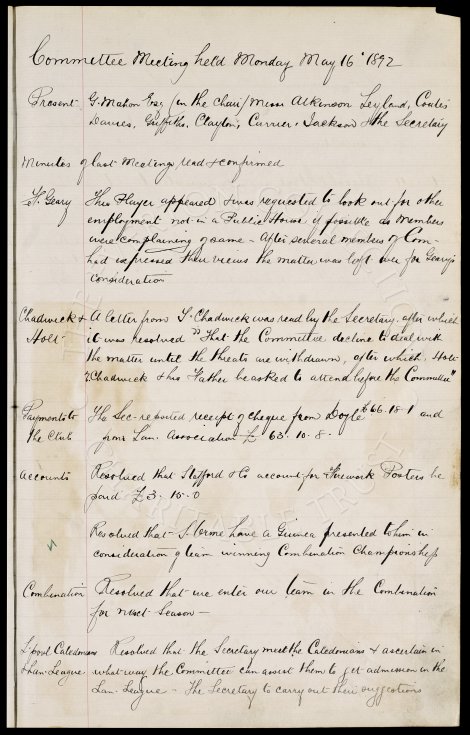 Committee Meeting held Monday May 16th 1892
Present G. Mahon Esq (in the chair) Messrs Atkinson Leyland, Coates
Davies, Griffiths, Clayton, Currier, Jackson & the Secretary
Minutes of last Meetings read & confirmed
F. Geary This Player appeared & was requested to look out for other
employment not in a Public House if possible as Members
were complaining of same - After several members of Com-
had expressed their views the matter was left over for Geary's
consideration
Chadwick & A letter from T. Chadwick was read by the Secretary, after which
Holt it was resolved "That the Committee decline to deal with
the matter until the threats are withdrawn, after which, Holt
& Chadwick & his Father be asked to attend before the Committee"
Payments to The Sec- reported receipt of cheque from Doyle £66.18.1 and
the Club from Lan. Association £ 63.10.8.
Accounts Resolved that Stafford & Co account for Firework Posters be
paid £3.15.0
Resolved that S. have a Guinea presented to him in
consideration of team winning Combination Championship
Combination Resolved that we enter our team in the Combination
for next Season -
L'pool Caledonians Resolved that the Secretary meet the Caledonians & ascertain in
& Lan League what way the Committee can assist them to get admission in the
Lan. League - The Secretary to carry out their suggestions